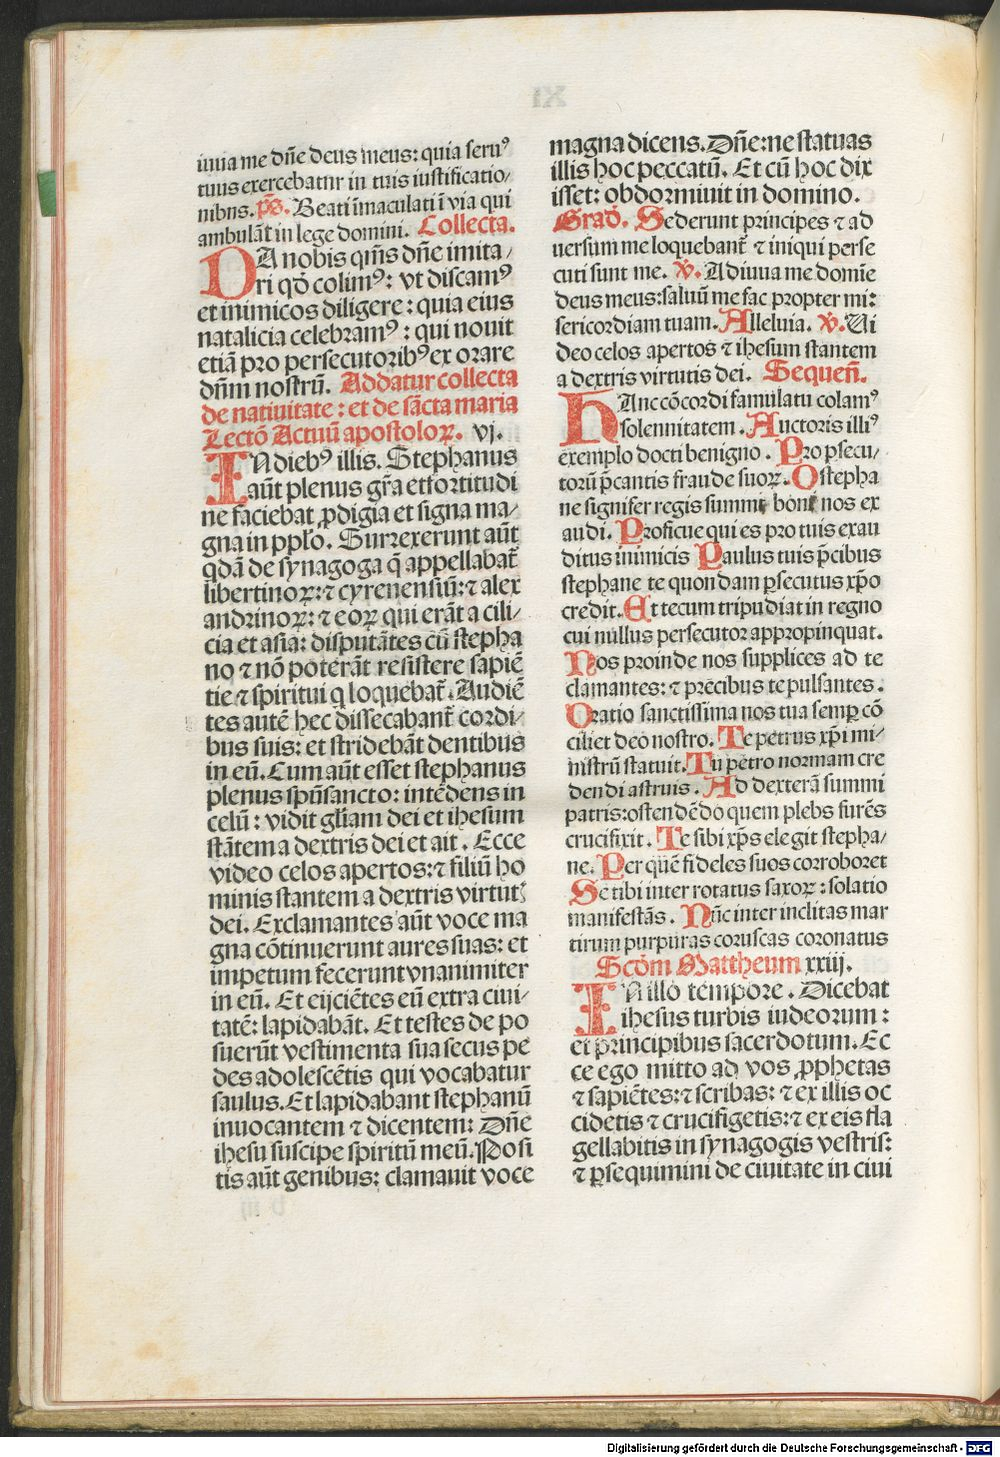 iuua me dñe deus meus: quia seruꝰ
tuus exercebatur in tuis iustificatio/
nibus. p̃s. Beati ĩmaculati ĩ via qui
ambulãt in lege domini. Collecta.
DA nobis qm̃s dñe imita/
ri qđ colimꝰ: vt discamꝰ
et inimicos diligere: quia eius
natalicia celebramꝰ: qui nouit
etiã pro persecutoribꝰ exorare
dñm nostrũ. Addatur collecta
de natiuitate: et de sãcta maria
Lectõ Actuũ apostoloꝝ. vj.
IN diebꝰ illis. Stephanus
aũt plenus gr̃a et fortitudi
ne faciebat ꝓdigia et signa ma/
gna in pplo. Surrexerunt aũt
qdã de synagoga q̃ appellabat̃
libertinoꝝ: ⁊ cyrenensiũ: ⁊ alex
andrinoꝝ: ⁊ eoꝝ qui erãt a cili/
cia et asia: disputãtes cũ stepha
no ⁊ nõ poterãt resistere sapiẽ
tie ⁊ spiritui q loquebat̃. Audiẽ
tes autẽ hec dissecabant̃ cordi/
bus suis: et stridebãt dentibus
in eũ. Cum aũt esset stephanus
plenus spũsancto: intẽdens in
celũ: vidit gl̃iam dei et ihesum
stãtem a dextris dei et ait. Ecce
video celos apertos: ⁊ filiũ ho
minis stantem a dextris virtutꝭ
dei. Exclamantes aũt voce ma
gna cõtinuerunt aures suas: et
impetum fecerunt vnanimiter
in eũ. Et eijciẽtes eũ extra ciui/
tatẽ: lapidabãt. Et testes de po
suerũt vestimenta sua secus pe
des adolescẽtis qui vocabatur
saulus. Et lapidabant stephanũ
inuocantem ⁊ dicentem: Dñe
ihesu suscipe spiritũ meũ. Posi
tis aũt genibus: clamauit voce
magna dicens. Dñe: ne statuas
illis hoc peccatũ. Et cũ hoc dix
isset: obdormiuit in domino.
Grad̃. Sederunt principes ⁊ ad
uersum me loquebant̃ ⁊ iniqui perse
cuti sunt me. ℣. Adiuua me domĩe
deus meus: saluũ me fac propter mi:
sericordiam tuam. Alleluia. ℣. Ui
deo celos apertos ⁊ ihesum stantem
a dextris virtutis dei. Sequeñ.
HAnc cõcordi famulatu colamꝰ
solennitatem. Auctoris illiꝰ
exemplo docti benigno. Pro ꝑsecu/
torũ p̃cantis fraude suoꝝ. O stepha
ne signifer regis summi boni nos ex
audi. Proficue qui es pro tuis exau
ditus inimicis Paulus tuis p̃cibus
stephane te quondam ꝑsecutus xp̃o
credit. Et tecum tripudiat in regno
cui nullus persecutor appropinquat.
Nos proinde nos supplices ad te
clamantes: ⁊ precibus te pulsantes.
Oratio sanctissima nos tua semꝑ cõ
ciliet deo nostro. Te petrus xp̃i mi/
nistrũ statuit. Tu petro normam cre
dendi astruis. Ad dexterã summi
patris: ostendẽdo quem plebs furẽs
crucifixit. Te sibi xp̃s elegit stepha/
ne. Per quẽ fideles suos corroboret
Se tibi inter rotatus saxoꝝ: solatio
manifestãs. Nũc inter inclitas mar
tirum purpuras coruscas coronatus
Scđm Mattheum xxiij.
IN illo tempore. Dicebat
ihesus turbis iudeorum:
et principibus sacerdotum. Ec
ce ego mitto ad vos ꝓphetas
⁊ sapiẽtes: ⁊ scribas: ⁊ ex illis oc
cidetis ⁊ crucifigetis: ⁊ ex eis fla
gellabitis in synagogis vestris:
⁊ ꝑsequimini de ciuitate in ciui
Digitalisierung gefördert durch die Deutsche Forschungsgemeinschaft - DFG